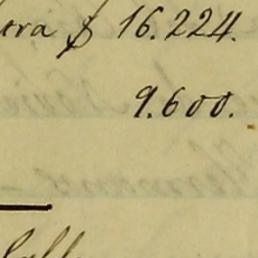 tra $ 16.224.
9.600.